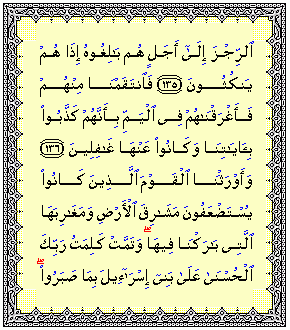 ٱلرِّجْزَ إِلَىٰٓ أَجَلٍ هُم بَـٰلِغُوهُ إِذَا هُمْ
يَنكُثُونَ ١٣٥ فَٱنتَقَمْنَا مِنْهُمْ
فَأَغْرَقْنَـٰهُمْ فِى ٱلْيَمِّ بِأَنَّهُمْ كَذَّبُوا۟
بِـَٔايَـٰتِنَا وَكَانُوا۟ عَنْهَا غَـٰفِلِينَ ١٣٦
وَأَوْرَثْنَا ٱلْقَوْمَ ٱلَّذِينَ كَانُوا۟
يُسْتَضْعَفُونَ مَشَـٰرِقَ ٱلْأَرْضِ وَمَغَـٰرِبَهَا
ٱلَّتِى بَـٰرَكْنَا فِيهَا ۖ وَتَمَّتْ كَلِمَتُ رَبِّكَ
ٱلْحُسْنَىٰ عَلَىٰ بَنِىٓ إِسْرَٰٓءِيلَ بِمَا صَبَرُوا۟ ۖ